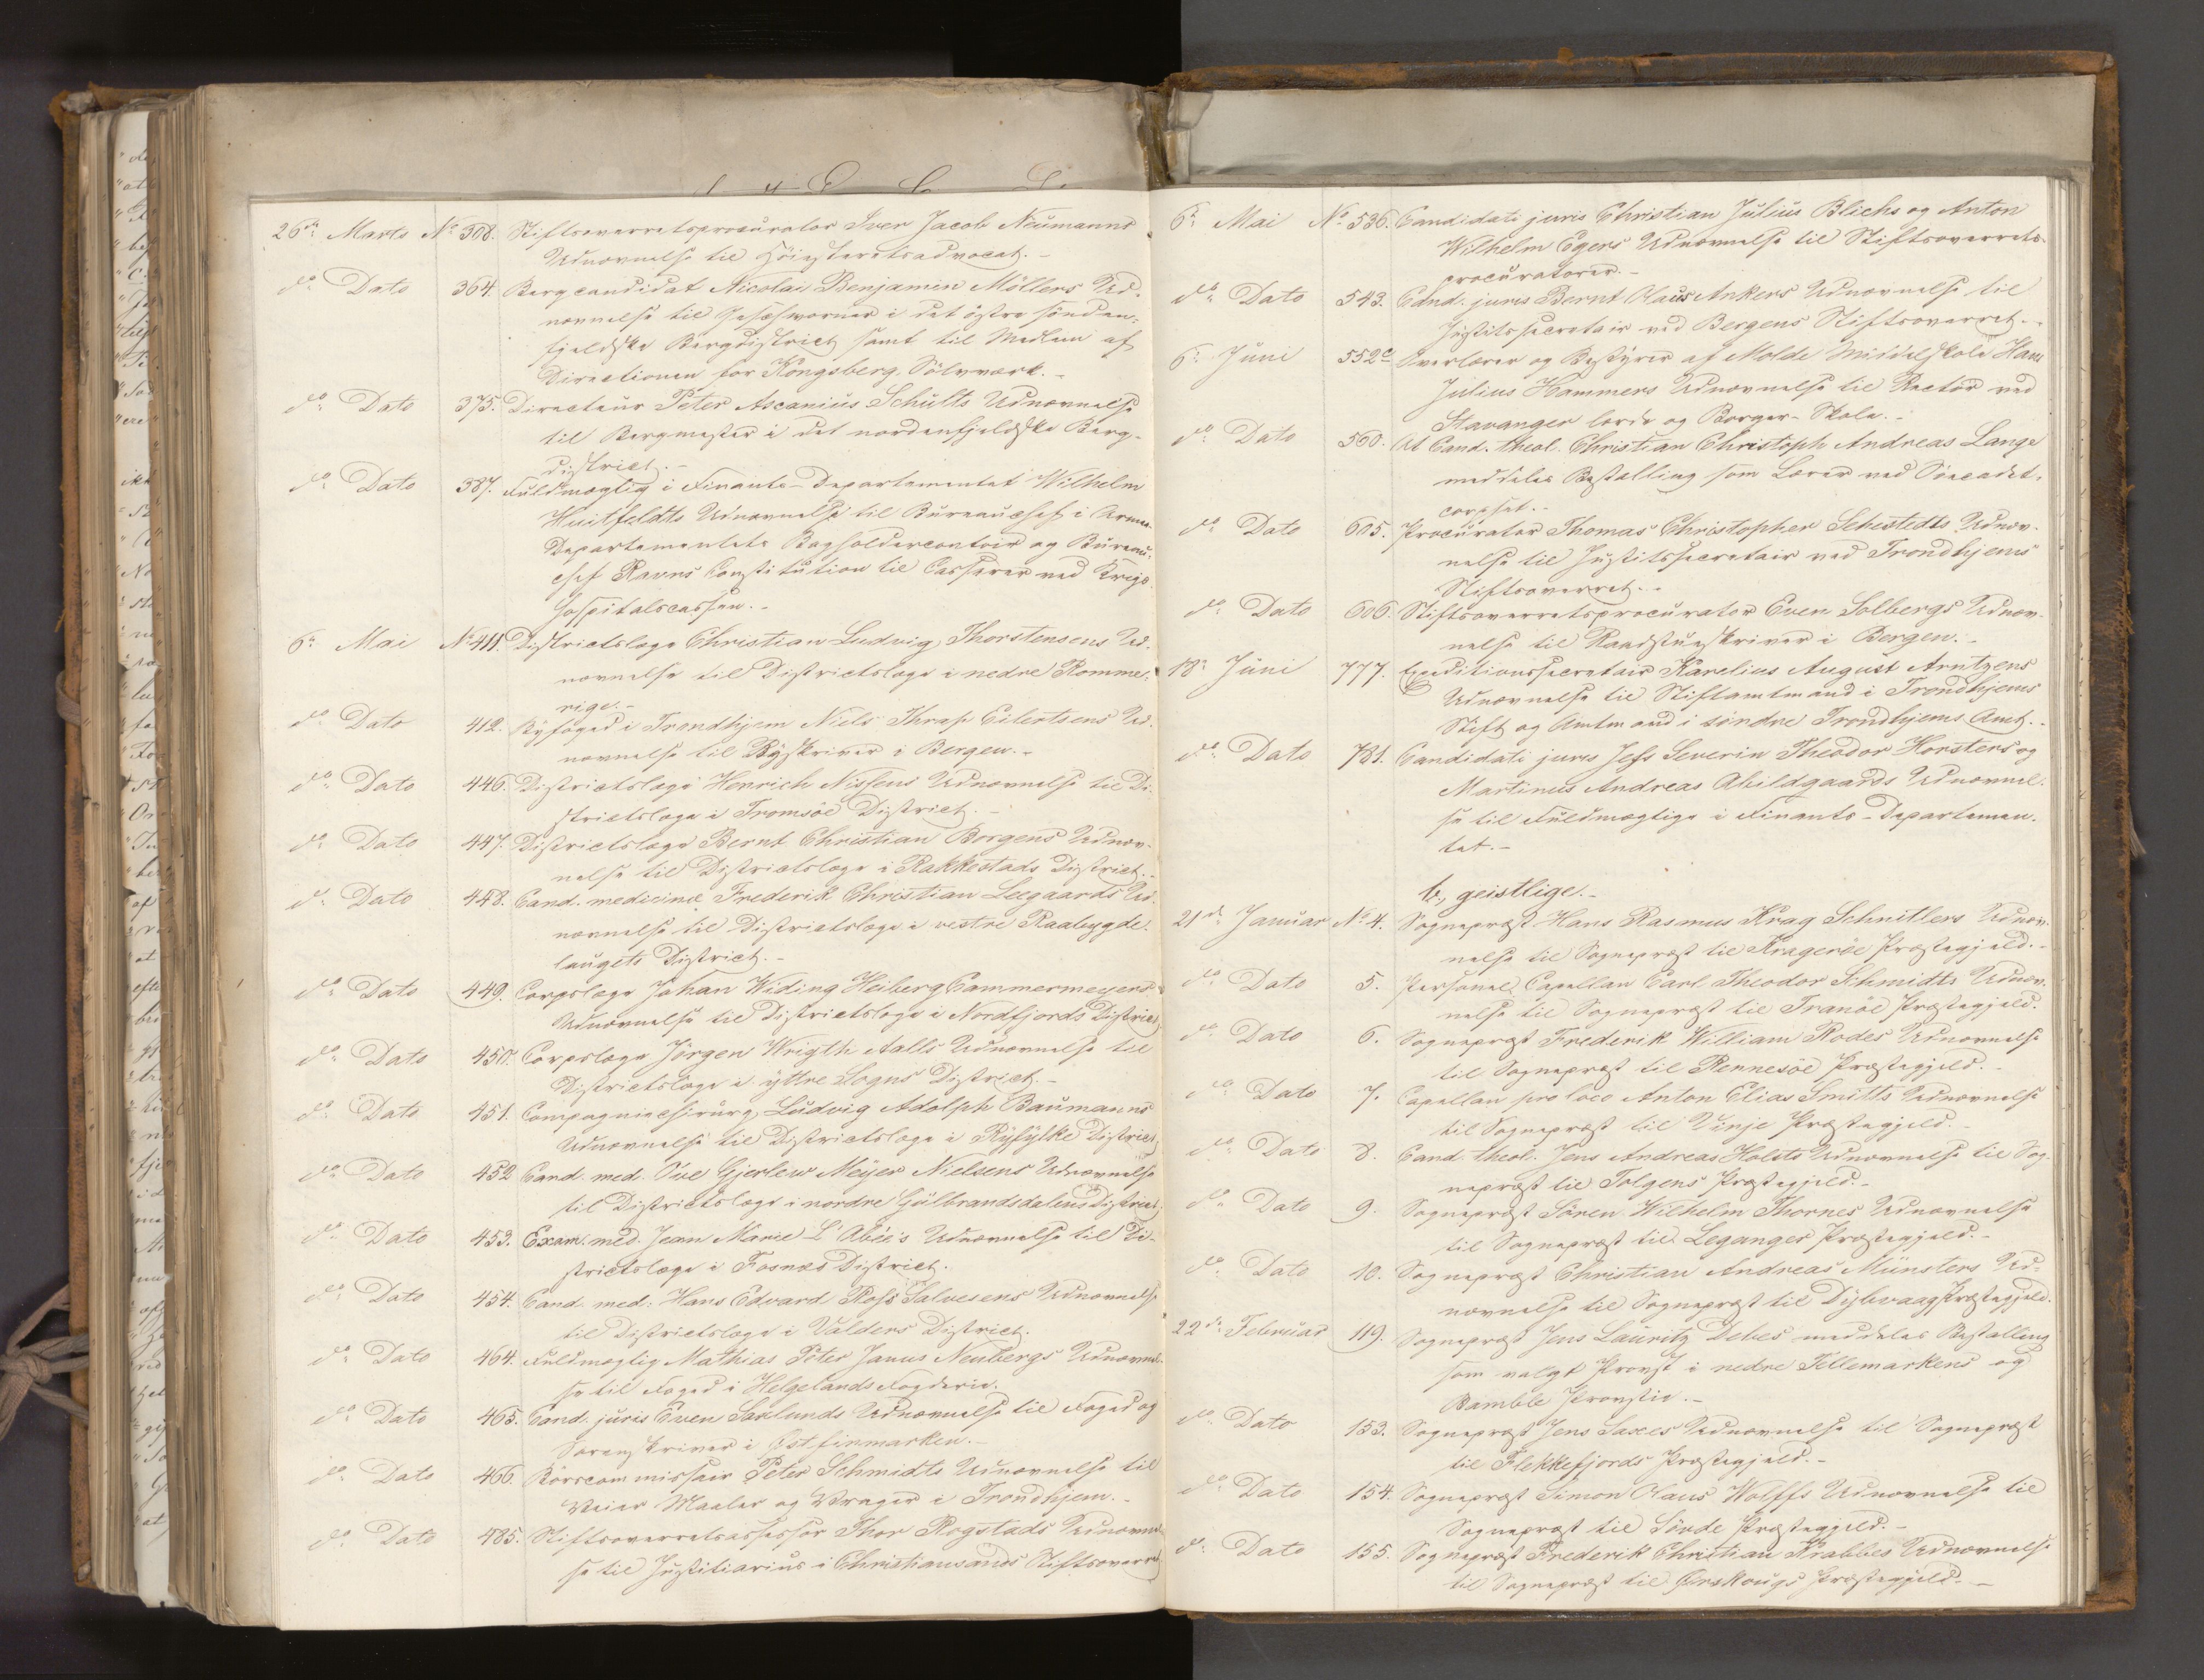 26de Marts No 308. Stiftsoverretsprocurator Iver Jacob Neumanns
Udnævnelse til Höiesteretsadvocat.-
do Dato 364. Bergcandidat Nicolai Benjamin Möllers Ud-
nævnelse til Geschworner i det östre sönden-
fjeldske Bergdistrict samt til Medlem af
Directionen for Kongsberg Sölvværk.-
do Dato 375. Directeur Peter Ascanius Schults Udnævnelse
til Bergmester i det nordenfjeldske Berg-
district.-
do Dato 387. Fuldmægtig i Finants-Departementet Wilhelm
Huitfeldts Udnævnelse til Bureauchef i Armee-
Departementets Bogholdercontoir og Bureau-
chef Ravns Constitution til Casserer ved Krigs-
hospitalscassen.-
6te Mai No 411. Districtslæge Christian Ludvig Thorstensens Ud-
nævnelse til Districtslæge i nedre Romme-
rige.-
do Dato 412. Byfoged i Trondhjem Niels Thrap Eilertsens Ud-
nævnelse til Byskriver i Bergen.-
do Dato 446. Districtslæge Henrich Nissens Udnævnelse til Di-
strictslæge i Tromsöe District.-
do Dato 447. Districtslæge Bernt Christian Borgens Udnæv-
nelse til Districtslæge i Rakkestads District.-
do Dato 448. Cand. medicinæ Frederik Christian Leegaards Ud-
nævnelse til Districtslæge i vestre Raabygde-
laugets District.-
do Dato 449. Corpslæge Johan Widing Heiberg Cammermeyers
Udnævnelse til Districtslæge i Nordfjords District.
do Dato 450. Corpslæge Jörgen Wrigth Aalls Udnævnelse til
Districtslæge i yttre Sogns District.-
do Dato 451. Compagniechirurg Ludvig Adolph Baumanns
Udnævnelse til Districtslæge i Ryfylke District.
do Dato 452 Cand. med. Ove Gjerlew Meyer Nielsens Udnævnelse
til Districtslæge i nordre Gulbrandsdalens District.
do Dato 453. Exam. med. Jean Marie L'Abée's Udnævnelse til Di-
strictslæge i Fosnæs District.
do Dato 454. Cand. med: Hans Edvard Ross Salvesens Udnævnelse
til Districtslæge i Valders District.
do Dato 464. Fuldmægtig Mathias Peter Janus Neubergs Udnævnel-
se til Foged i Helgelands Fogderie.
do Dato 465. Cand. juris Even Saxlunds Udnævnelse til Foged og
Sorenskriver i Østfinmarken.-
do Dato 466. Börscommissair Peter Schmidts Udnævnelse til
Veier Maaler og Vrager i Trondhjem.-
do Dato 485. Stiftsoverretsassessor Thor Rogstads Udnævnel-
se til Justitiarius i Christiansands Stiftsoverret.
6te Mai No 536. Candidati juris Christian Julius Blichs og Anton
Wilhelm Egers Udnævnelse til Stiftsoverrets-
procuratorer.-
do Dato 543. Cand. juris Bernt Olaus Ankers Udnævnelse til
Justitssecretair ved Bergens Stiftsoverret.-
6te Juni 552c Overlærer og Bestyrer af Molde Middelskole Hans
Julius Hammers Udnævnelse til Rector ved
Stavanger lærde og Borger-Skole.-
do Dato 560. At Cand. theol. Christian Christoph Andreas Lange
meddeles Bestalling som Lærer ved Söecadet-
corpset.-
do Dato 605. Procurator Thomas Christopher Schestedts Udnæv-
nelse til Justitssecretair ved Trondhjems
Stiftsoverret.-
do Dato 606. Stiftsoverretsprocurator Even Solbergs Udnæv-
nelse til Raadstueskriver i Bergen.-
18de Juni 777. Expeditionssecretair Karelius August Arntzens
Udnævnelse til Stiftamtmand i Trondhjems
Stift og Amtmand i söndre Trondhjems Amt.-
do Dato 781. Candidati juris Jess Severin Theodor Horsters og
Martinus Andreas Abildgaards Udnævnel-
se til Fuldmægtige i Finants-Departemen-
tet.-
b., geistlige.-
21de Januar No 4. Sognepræst Hans Rasmus Krag Schnitlers Udnæv-
nelse til Sognepræst til Krageröe Præstegjeld.-
do Dato 5. Personel Capellan Carl Theodor Schmidts Udnæv-
nelse til Sognepræst til Tranöe Præstegjeld.
do Dato 6. Sognepræst Frederik William Rodes Udnævnelse
til Sognepræst til Rennesöe Præstegjeld.
do Dato 7. Capellan pro loco Anton Elias Smitts Udnævnelse
til Sognepræst til Vinje Præstegjeld.
do Dato 8. Cand. theol. Jens Andreas Holsts Udnævnelse til Sog-
nepræst til Tolgens Præstegjeld.-
do Dato 9. Sognepræst Sören Wilhelm Thornes Udnævnelse
til Sognepræst til Leganger Præstegjeld.-
do Dato 10. Sognepræst Christian Andreas Münsters Ud-
nævnelse til Sognepræst til Dybvaag Præstegjeld.
22de Februar 119. Sognepræst Jens Lauritz Dehes meddeles Bestalling
som valgt Provst i nedre Tellemarkens og
Bamble Provstie.-
do Dato 153. Sognepræst Jens Saxes Udnævnelse til Sognepræst
til Flekkefjords Præstegjeld.-
do Dato 154. Sognepræst Simon Olaus Wolffs Udnævnelse til
Sognepræst til Sönde Præstegjeld.-
do Dato 155. Sognepræst Frederik Christian Krabbes Udnævnelse
til Sognepræst til Ørskougs Præstegjeld.-